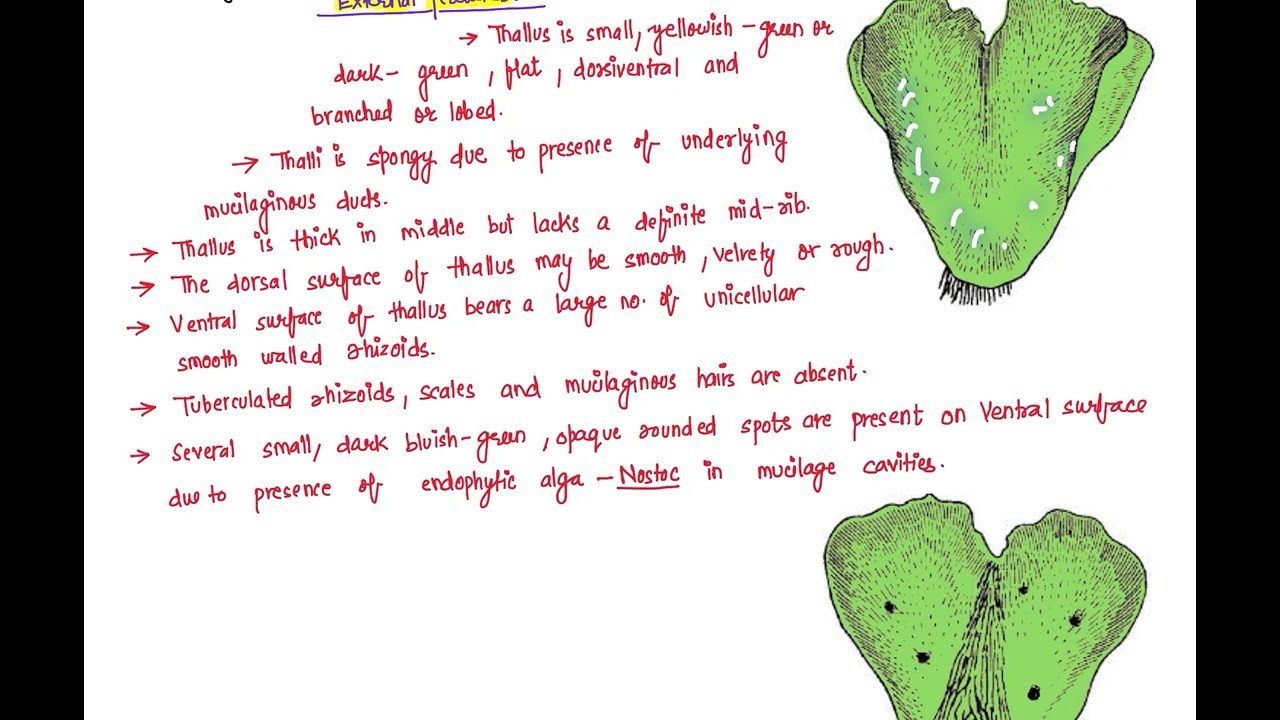 External features
→ Thallus is small, yellowish - green or
dark - green , flat , dorsiventral and
branched or lobed.
→ Thalli is spongy due to presence of underlying
mucilaginous ducts.
→ Thallus is thick in middle but lacks a definite mid-rib.
→ The dorsal surface of thallus may be smooth , velvety or rough.
→ Ventral surface of thallus bears a large no. of unicellular
smooth walled rhizoids.
→ Tuberculated rhizoids , scales and mucilaginous hairs are absent.
→ Several small, dark bluish-green , opaque rounded spots are present on Ventral surface
due to presence of endophytic alga - Nostoc in mucilage cavities.